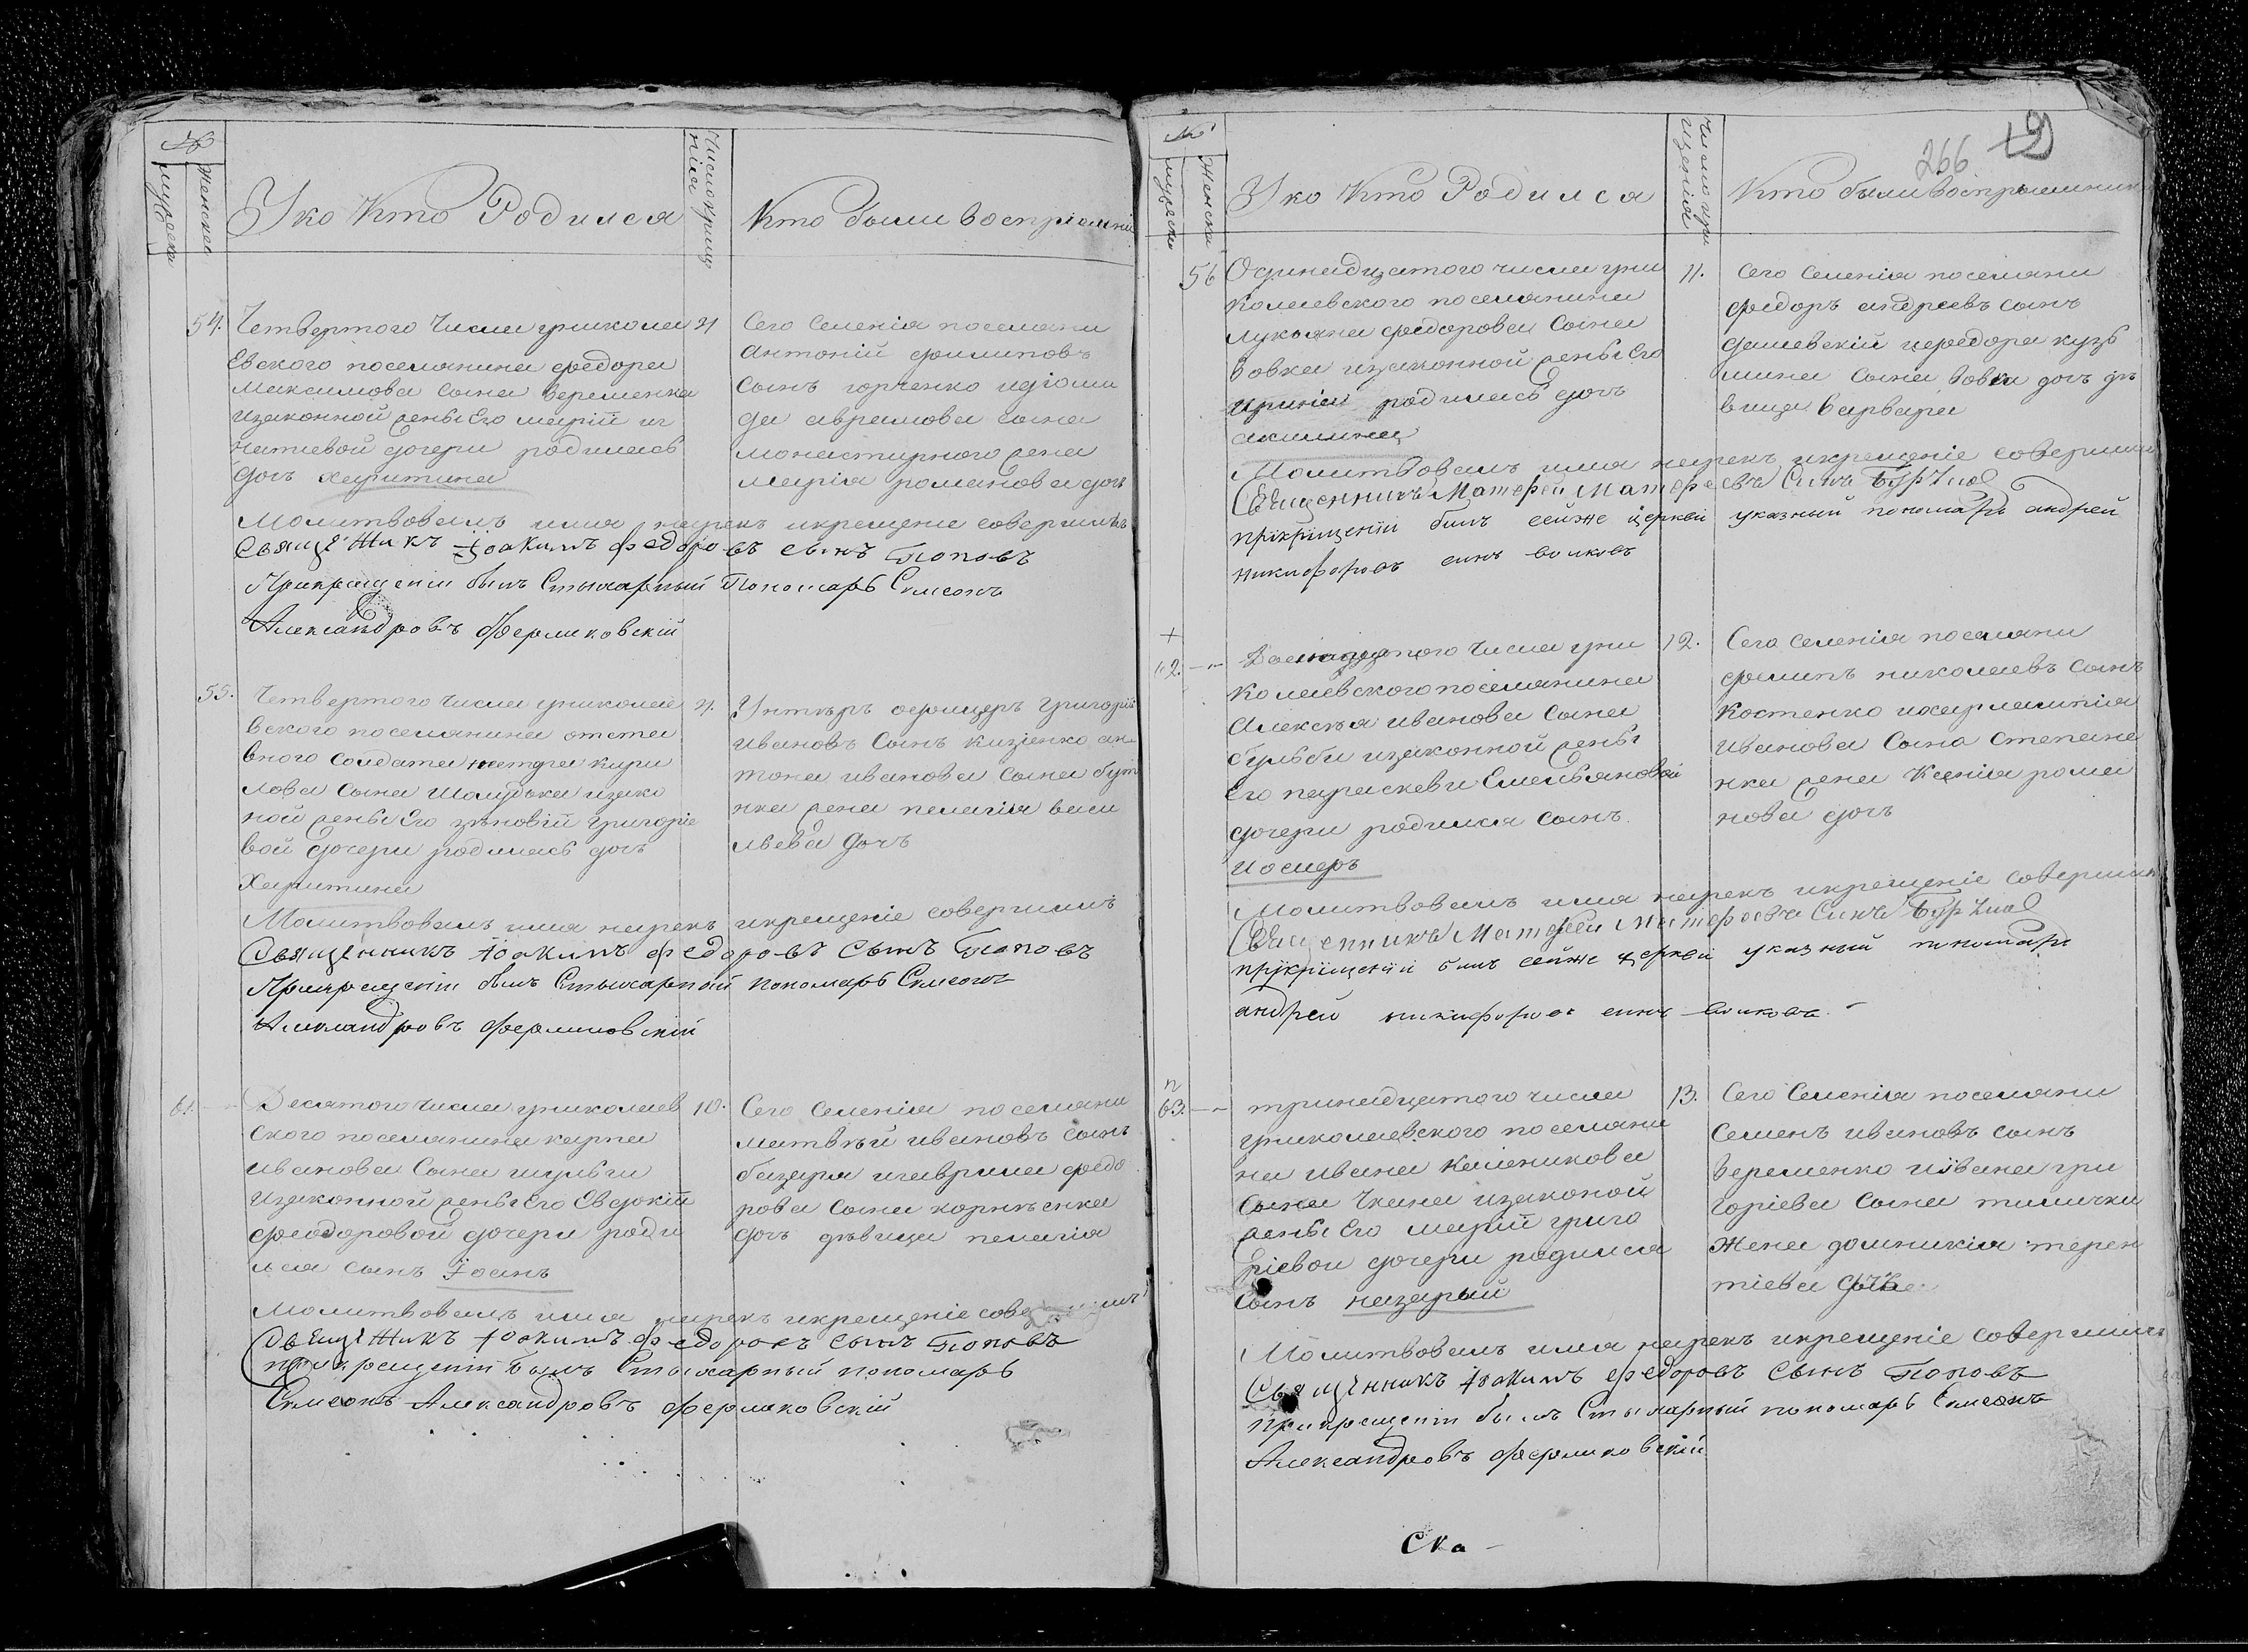 №
мужеска
женска
У кого Кто Родился
Число крище
нія
Кто были воспріемни
54.
Четвертого Числа униколаи
евского поселянина федора
Максимова сына веременка
изаконной жены Его марій иг
натиевой дочери родилась
дочь харитина
4
Сего Селенія поселяни
Антоній филиповъ
сынъ горченко
да аврамова сына
монастирного жена
марія романова дочь
Молитвовалъ имя нарекъ икрещеніе совершилъ
Священникъ Іоакимъ федоровъ сынъ Поповъ
Прикрещеніи былъ Стихарный Пономарь Симеонъ
Александровъ Фермаковскій
55.
Четвертого Числа униколае
вского поселянина отста
вного солдата петра кири
лова сына Шолудька изако
ной жены Его зѣновій григоріе
вой дочери родилась дочь
Харитина
4.
Унтеръ офицеръ Григорій
Ивановъ Сынъ Кизіенко ан
тона иванова сына бут
нка жена пелагія васи
льева дочь
Молитвовалъ имя нарекъ икрещеніе совершилъ
Священникъ Іоакимъ федоровъ сынъ Поповъ
Прикрещеніи былъ Стихарный пономарь Симеонъ
Александровъ Фермаковскій
61.
Десятого Числа униколаев
ского поселянина карпа
иванова Сына шульги
изаконной жены Его Евдокій
феодоровой дочери роди
лся сынъ Іоанъ
10.
Сего Селенія поселяни
матвѣй ивановъ сынъ
базара игаврила федо
рова сына корнѣенка
дочь дѣвица пелагія
Молитвовалъ имя нарекъ икрещеніе
Священникъ Іоакимъ федоровъ сынъ Поповъ
прикрещеніи былъ Стихарный пономарь
Симеонъ Александровъ Фермаковскій
№
мужеска
женска
У кого Кто Родился
Число кри
щенія
Кто были воспріемник
266
19
56
Одинадцатого числа уни
колаевского поселянина
лукьяна федорова Сына
вовка изаконной жены Его
ириній родилась дочь
акилина
11.
Сего Селенія поселяни
федоръ андреевъ сынъ
дашевскій ифедора кузь
мина сына вовка дочь дѣ
вица варвара
Молитвовалъ имя нарекъ икрещеніе совершилъ
Священникъ Матфей Матфеевъ Синъ
прікріщеніи билъ сейже церкви указный пономарь андрей
никифоровъ синъ волковъ
+
62.
Двенадцатого Числа уни
колаевского поселянина
Алексѣя иванова сына
бульби изаконной жены
Его параскеви Емельяновой
дочери родился сынъ
иосифъ
12.
Сего Селенія поселяни
филипъ николаевъ сынъ
Костенко ихарлампія
иванова Сына Степане
нка жена Ксенія рома
нова дочь
Молитвовалъ имя нарекъ икрещеніе совершилъ
Священникъ Матфей Матфеевъ Синъ
прікріщеніи билъ сейже церкви указный пономарь
андрей никифоровъ синъ волковъ
п
63.
тринадцатого числа
униколаевского поселяни
на ивана каленикова
сына Чкана изаконой
жены Его марій григо
ріевой дочери родился
сынъ назарый
13.
Сего Селенія поселяни
Семенъ ивановъ сынъ
веременко иївана гри
горіева сына тимичка
Жена домникія терен
тіева дочь
Молитвовалъ имя нарекъ икрещеніе совершилъ
Священникъ Іоакимъ федоровъ сынъ Поповъ
прикрещеніи былъ Стихарный пономарь Симеонъ
Александровъ Фермаковскій
ска